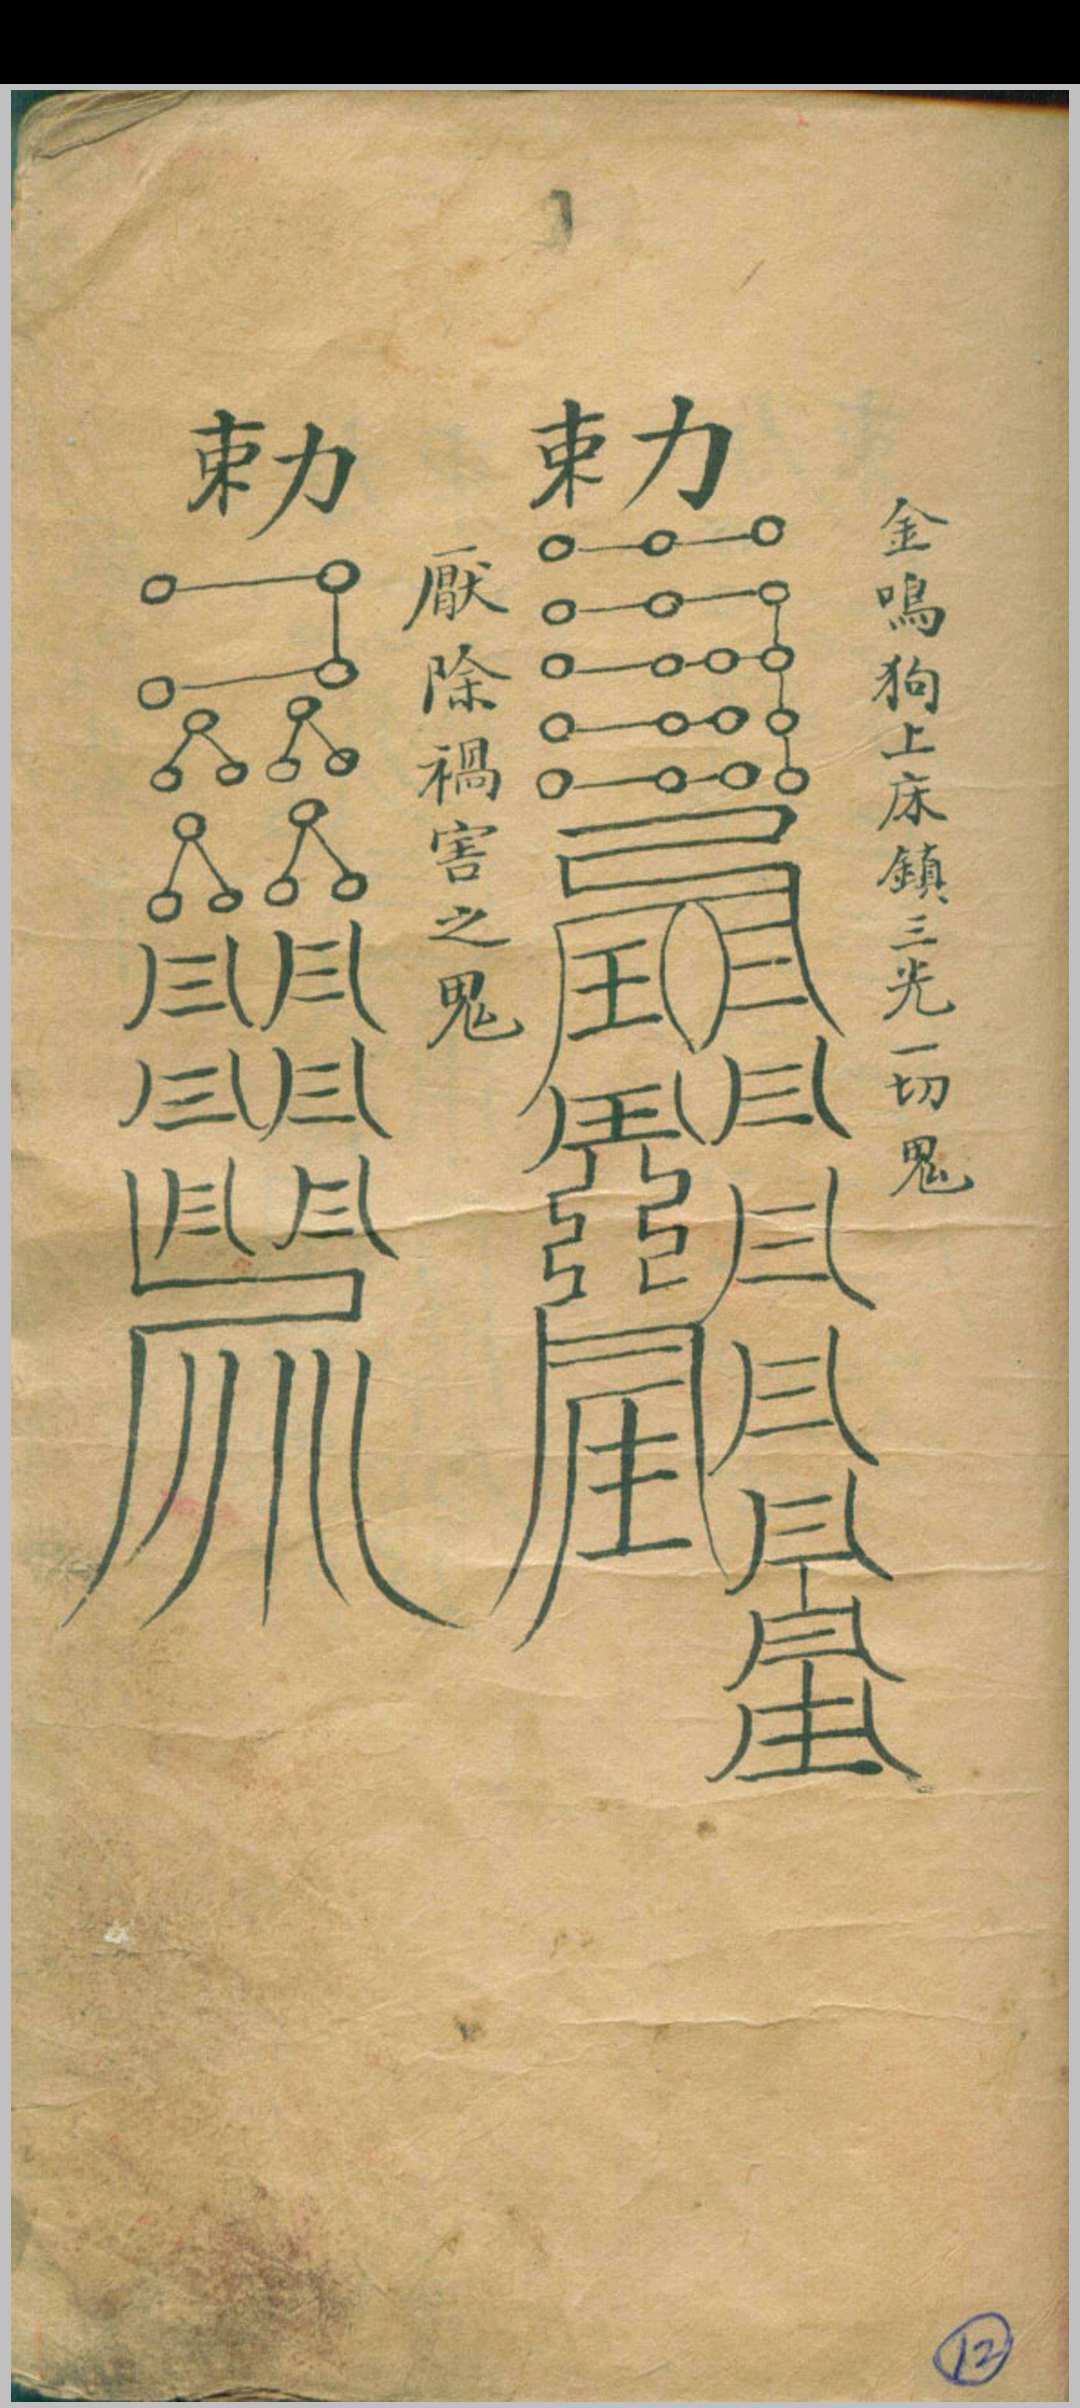 金鳴狗上床鎮三光一切鬼
勅
厭除禍害之鬼
勅
12